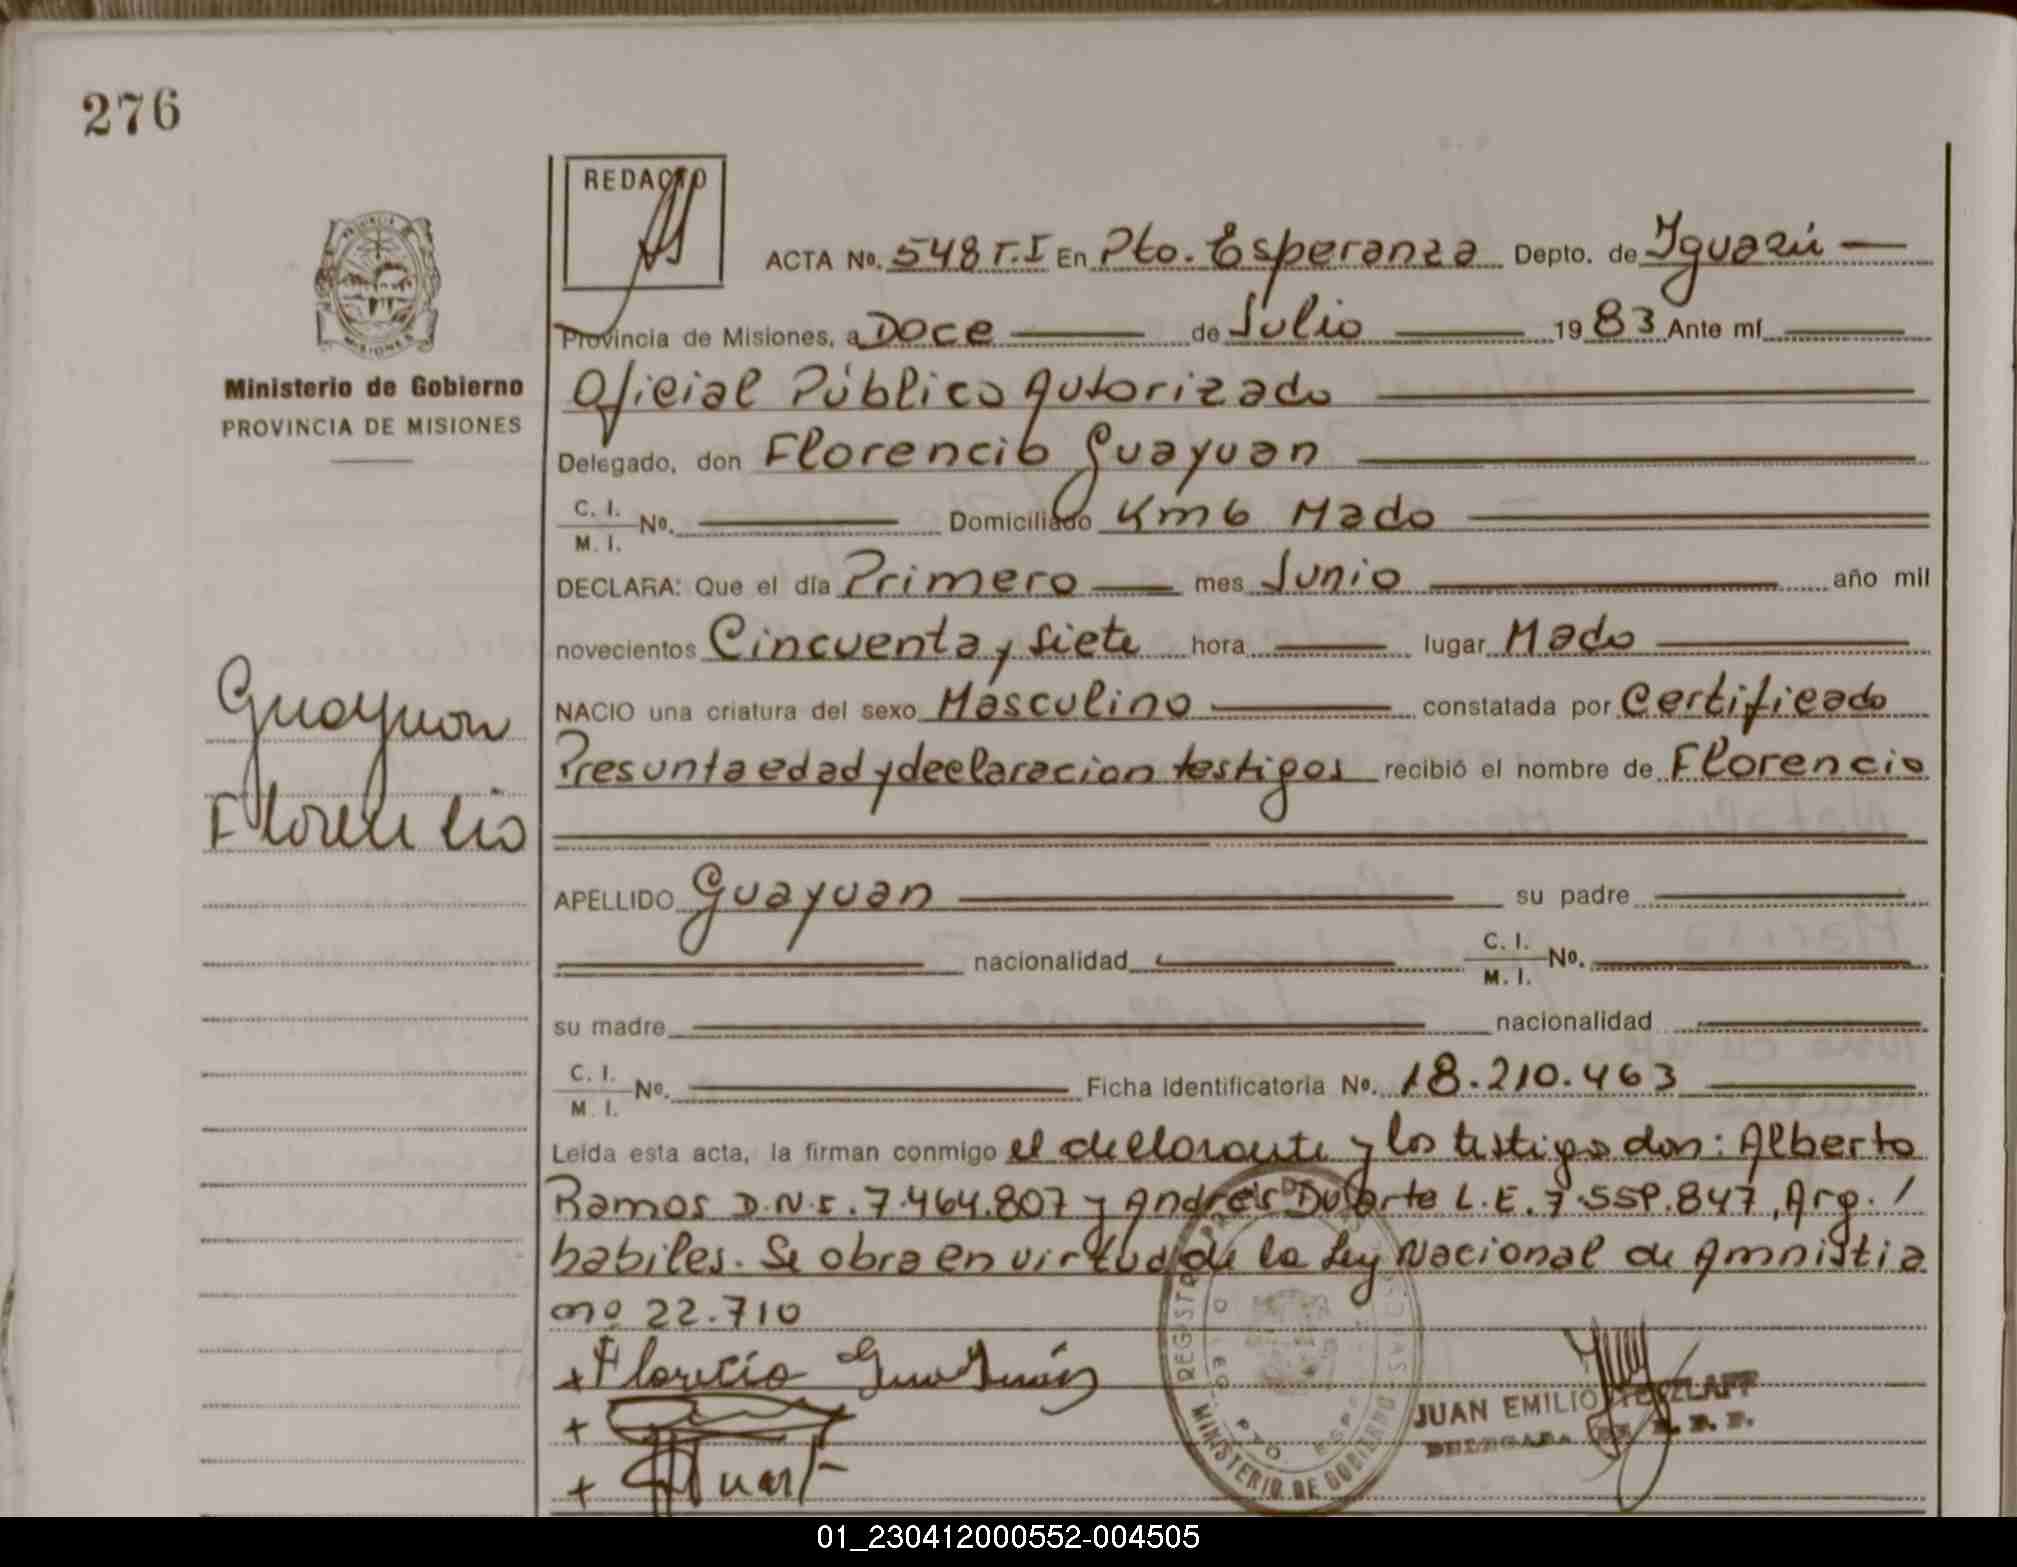 276
REDACTO
ACTA No. 548 T.I En Pto. Esperanza Depto. de Iguazú
Provincia de Misiones, a Doce de Julio 1983 Ante mí
Ministerio de Gobierno
PROVINCIA DE MISIONES
Oficial Público Autorizado
Delegado, don Florencio Guayuan
C. I.
M. I. No. Domiciliado Km 6 Mado
DECLARA: Que el día Primero mes Junio año mil
novecientos Cincuenta y siete hora lugar Mado
Guayuan
Florencio
NACIO una criatura del sexo Masculino constatada por Certificado
Presunta edad y declaracion testigos recibió el nombre de Florencio
APELLIDO Guayuan su padre
nacionalidad C. I.
M. I. No.
su madre nacionalidad
C. I.
M. I. No. Ficha Identificatoria No. 18.210.463
Leída esta acta, la firman conmigo el declarante y los testigos don: Alberto
Ramos D.N.I. 7.464.807 y Andrés Duarte L.E. 7.559.847, Arg. /
habiles. Se obra en virtud de la Ley Nacional de Amnistia
nº 22.710
+ Florecio
+
+
MINISTERIO DE GOBIERNO
PTO. ESP
JUAN EMILIO
01_230412000552-004505